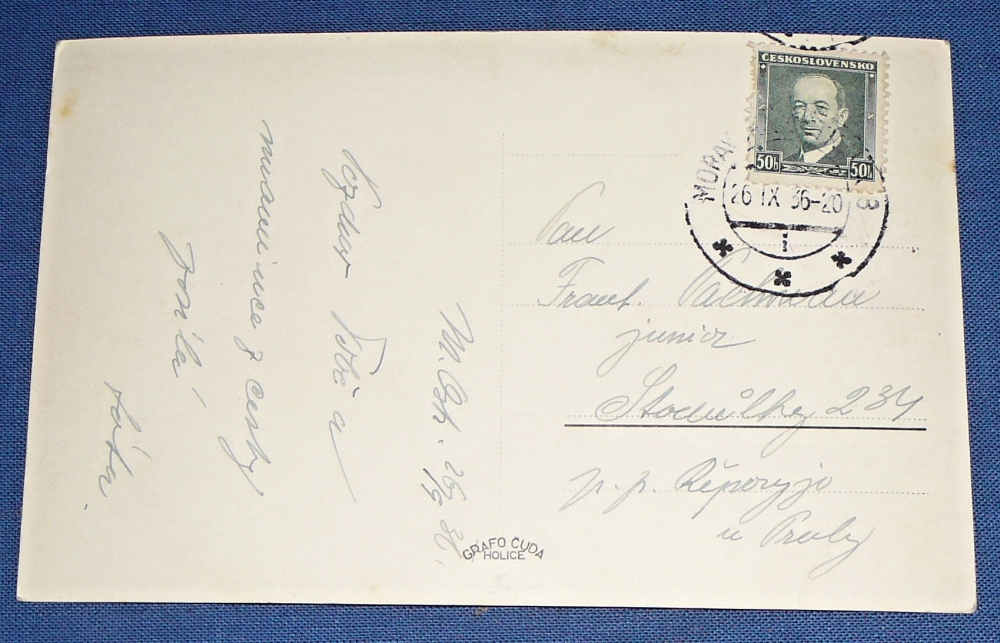 M. Ostr. 26/9 36.
Pozdrav Tobě a
mamince z cesty
posílá
táta.
ČESKOSLOVENSKO
50h 50h
MORAV
26 IX 36-20
1
Pan
Frant.
junior
Stodůlky 234
p. p. Řeporyje
u Prahy
GRAFO ČUDA
HOLICE